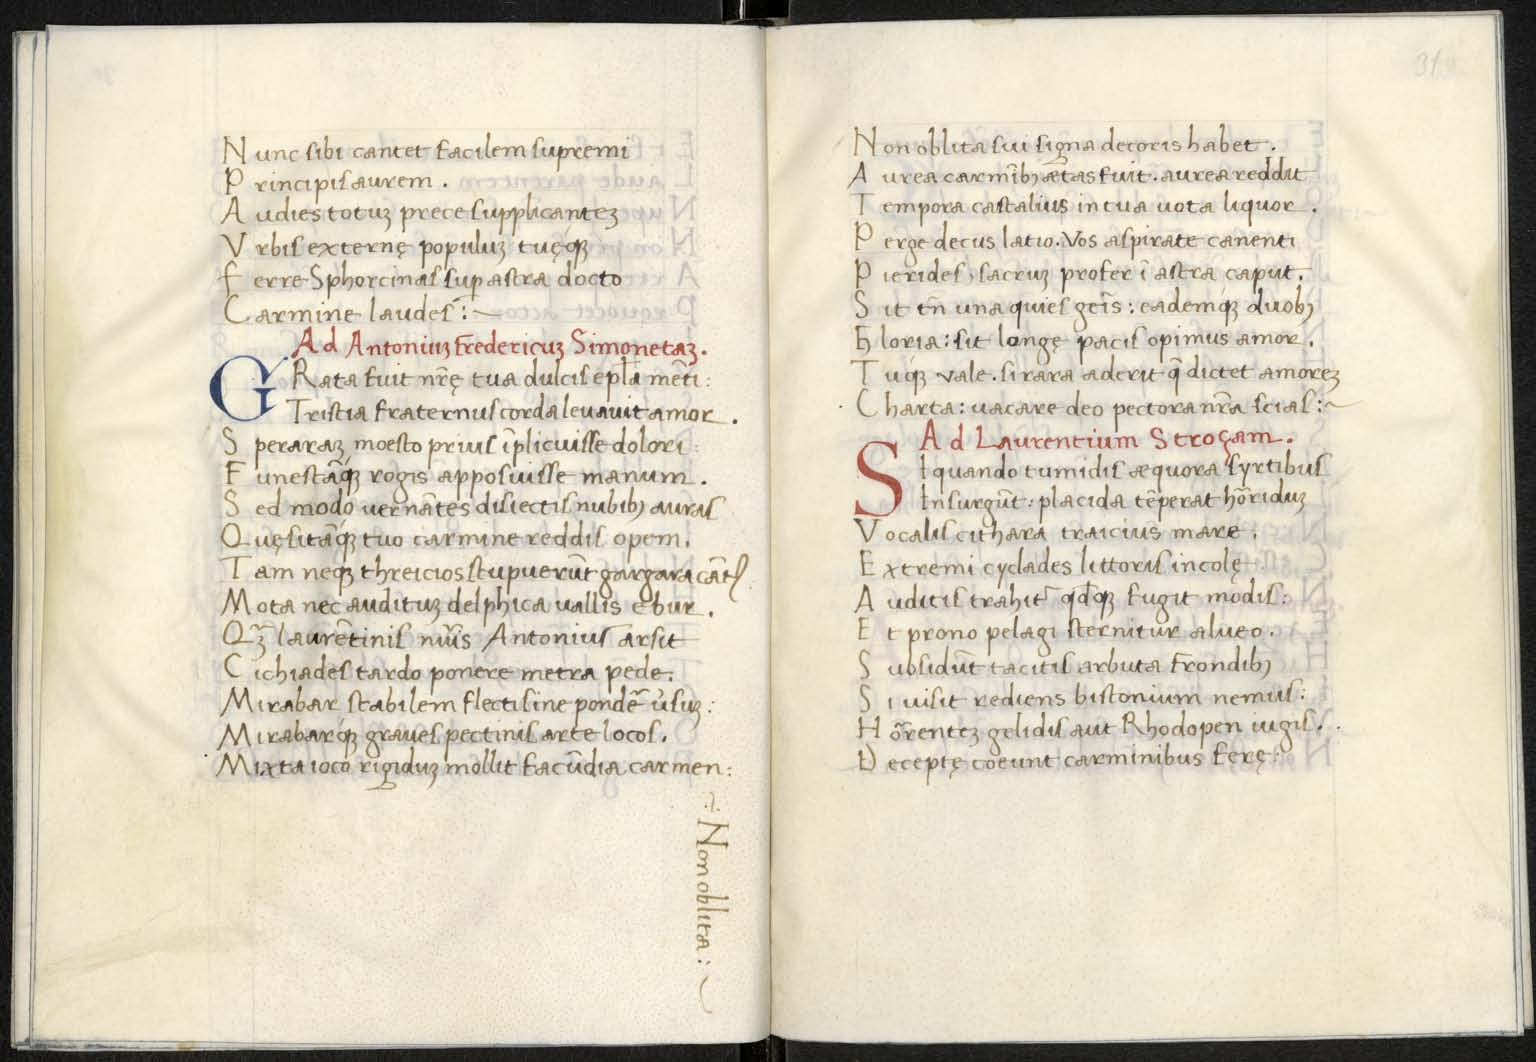 Nunc sibi cantet facilem supremi
Principis aurem.
Audies totuȝ prece supplicanteȝ
Vrbis externę populuȝ tuęq́ȝ
Ferre Sphorcinas sup astra docto
Carmine laudes:~
Ad Antoniuȝ Fredericuȝ Simonetaȝ.
GRata fuit nr̄ę tua dulcis epl̄a mēti:
Tristia fraternus corda leuauit amor.
Speraraȝ moesto prius īplicuisse dolori:
Funestāq́ȝ rogis apposuisse manum.
Sed modo uernātes disiectis nubibꝫ auras
Quęsitāq́ȝ tuo carmine reddis opem.
Tam neqȝ threicios stupuerūt gargara cāt᷒
Mota nec audituȝ delphica uallis ebur.
Qȝ̄ laurētinis nūīs Antonius arsit
Cichiades tardo ponere metra pede.
Mirabar stabilem flecti sine pondē u̓suȝ:
Mirabarq́ȝ graues pectinis arte locos.
Mixta ioco rigiduȝ mollit facūdia carmen:
~: Non oblita:~
31
Non oblita sui signa decoris habet.
Aurea carmībꝫ ætas fuit. aurea reddit
Tempora castalius in tua uota liquor.
Perge decus latio. Vos aspirate canenti
Pierides, sacruȝ profer ī astra caput.
Sit tn̄ una quies gētis: eademq́ȝ duobꝫ
Gloria: sit longę pacis opimus amor.
Tuq́ȝ vale. si rara aderit q̄ dictet amoreȝ
Charta: uacare deo pectora nr̄a scias:~
Ad Laurentium Stroçam.
SIquando tumidis æquora syrtibus
Insurgūt: placida tēperat hōriduȝ
Vocalis cithara traicius mare.
Extremi cyclades littoris incolę
Auditis trahit᷒ qdqȝ fugit modis:
Et prono pelagi sternitur alueo.
Subsidūt tacitis arbuta frondibꝫ
Si uisit rediens bistonium nemus:
Hōrenteȝ gelidis aut Rhodopen iugis.
Deceptę coeunt carminibus ferę: